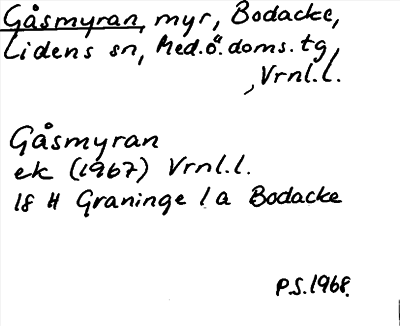 Gåsmyran, myr, Bodacke,
Lidens sn, Med.ö.doms.tg,
, Vrnl.l.
Gåsmyran
ek (1967) Vrnl.l.
18 H Graninge 1 a Bodacke
P.S.1968.